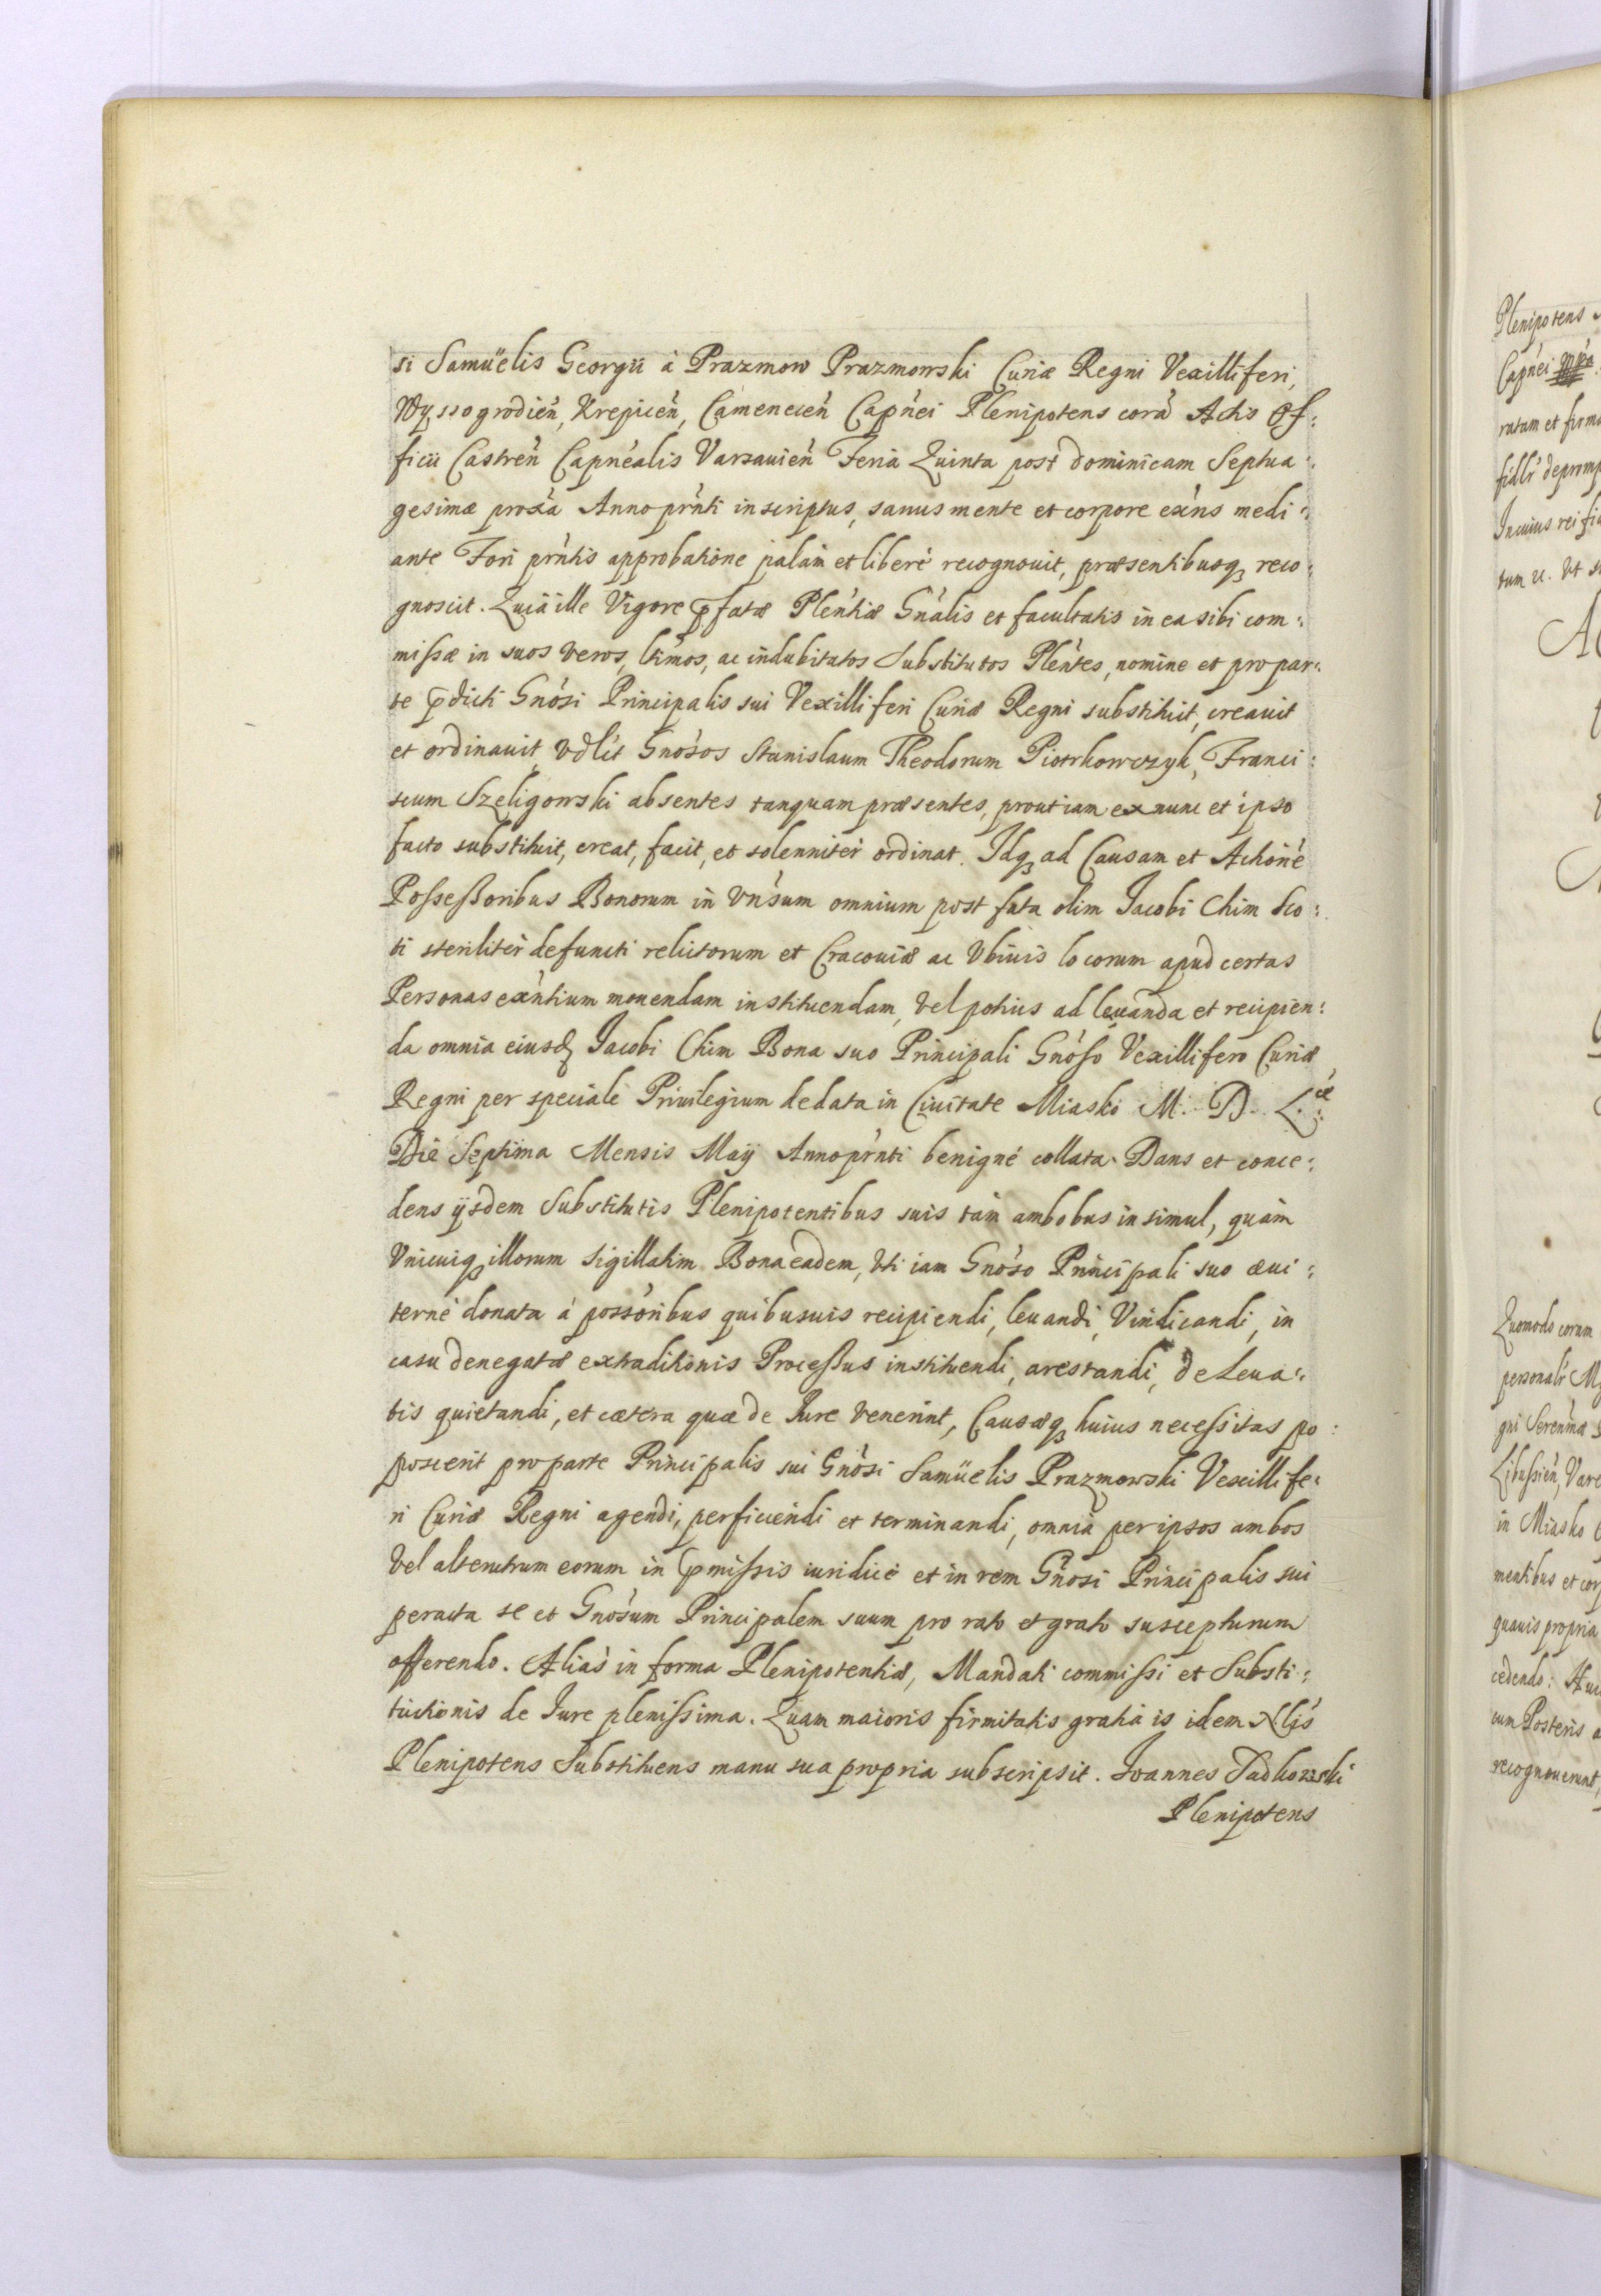 si Samüelis Georgii à Prazmow Prazmowski Curiæ Regni Vexilliferi,
Wyssogrodień, Krepicéń, Camenecéń Capńei Plenipotens corà Actis Of:
ficii Castréń Capnéalis Varsauień Feria Quinta post dominicam Septua:
gesimæ proxà Anno prńti inscriptus, sanus mente et corpore exńs medi:
ante Fori prńtis approbatione palàm et liberè recognouit, præsentibusq reco:
gnoscit. Quia ille Vigore p̄fatæ Pleńtiæ Gńalis et facultatis in ea sibi com:
missæ in suos veros, ltimos, ac indubitatos Substitutos Pleńtes, nomine et pro par:
te p̄dicti Gnósi Principalis sui Vexilliferi Curiæ Regni substituit, creauit
et ordinauit, vdlít Gnósos Stanislaum Theodorum Piotrkowczyk, Franci:
scum Szeligowski absentes tanquam præsentes, prout iam ex nunc et ipso
facto substituit, creat, facit, et solenniter ordinat. Idq ad Causam et Actioné
Possessoribus Bonorum in vnśum omnium post fata olim Jacobi Chim Sco:
ti steriliter defuncti relictorum et Cracouiæ ac Vbiuis locorum apud certas
Personas exńtium mouendam instituendam, vel potius ad leuanda et recipien:
da omnia eiusd Jacobi Chim Bona suo Principali Gnóso Vexillifero Curiæ
Regni per speciale Priuilegium de data in Ciuitate Miasko M. D. L.æ
Die Septima Mensis Maÿ Anno prńti benignè collata. Dans et conce:
dens ÿsdem Substitutis Plenipotentibus suis tàm ambobus insimul, quàm
Vnicuiq illorum sigillatim Bona eadem, vti iam Gnóso Principali suo æui:
ternè donata à possóribus quibusuis recipiendi, leuandi, Vindicandi, in
casu denegatæ extraditionis Processus instituendi, arestandi, de Leua:
tis quietandi, et cætera quæ de Jure venerint, Causæq huius necessitas po:
poscerit pro parte Principalis sui Gnósi Samüelis Prazmowski Vexillife:
ri Curiæ Regni agendi, perficiendi et terminandi, omnia per ipsos ambos
Vel alterutrum eorum in p̄missis iuridicè et in rem Gnósi Principalis sui
peracta se et Gnósum Principalem suum pro rato et grato suscepturum
offerendo. Aliàs in forma Plenipotentiæ, Mandati commissi et Substi:
tutionis de Jure plenissima. Quam maioris firmitatis gratia is idem Nlis
Plenipotens Substituens manu sua propria subscripsit. Joannes
Plenipotens
Plenipotens
Capńei
ratam et firma
tum
Quomodo coram
in Miasko
quauis propria
cedendo:
cum Posteris
recognouerunt,